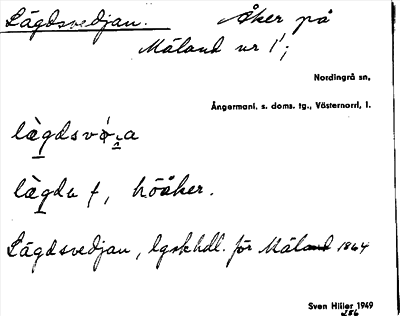 Lägdsvedjan. Åker på
Måland nr 1;
Nordingrå sn,
Ångermanl. s. doms. tg., Västernorrl. l.
lägdu f, höåker.
Lägdsvedjan, lgskhdl. för Måland 1864
Sven Hiller 1949
286